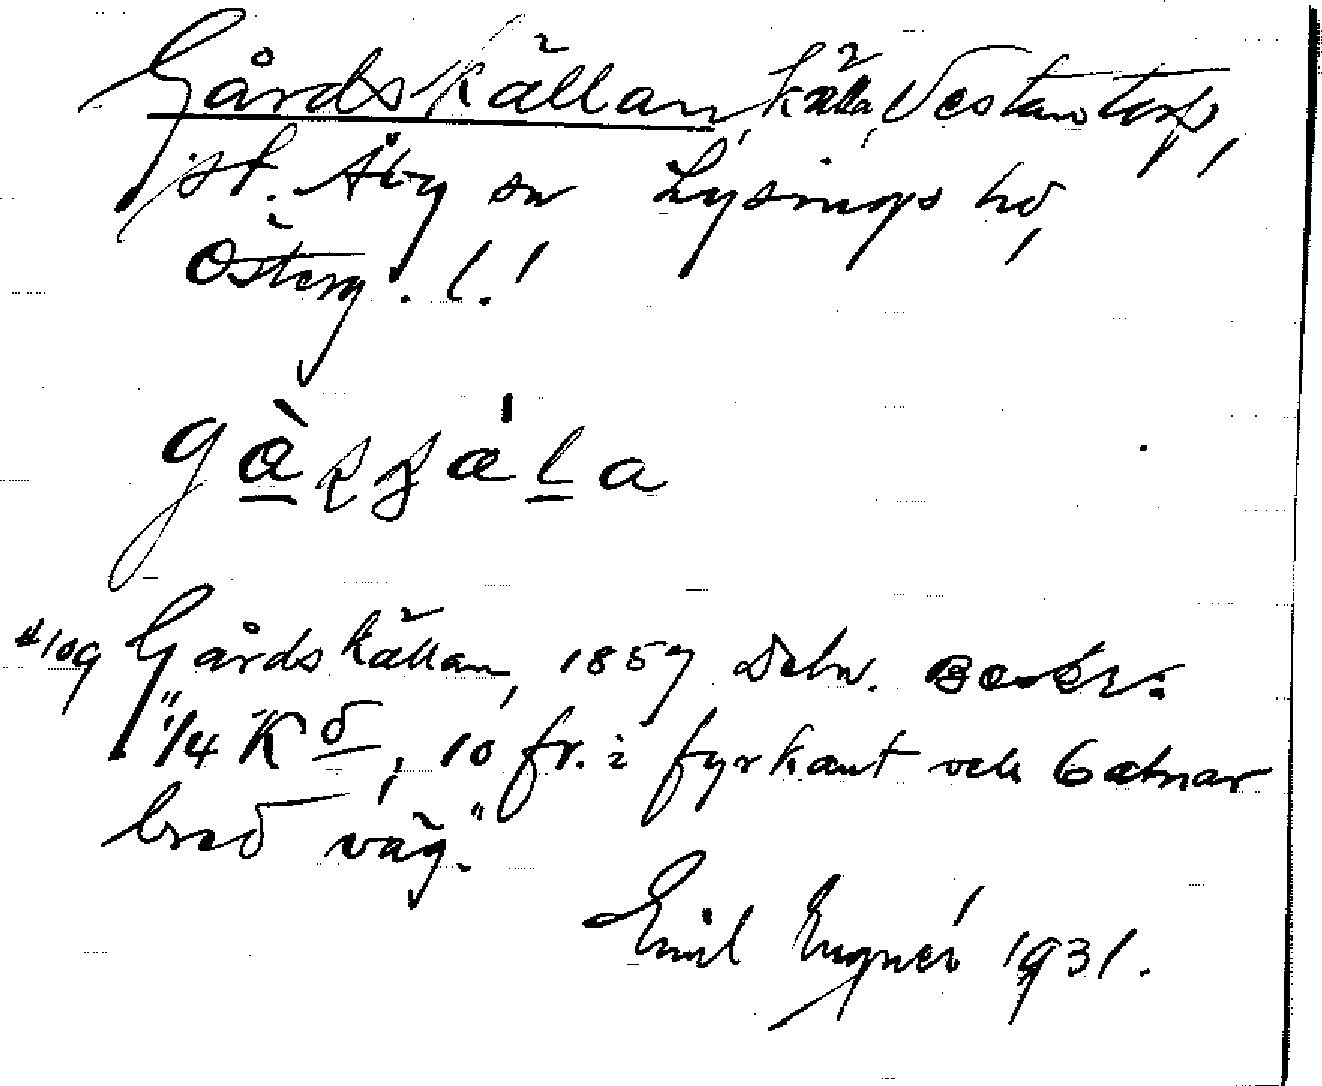 Gårdskällan, källa, Vestantorp,
st. Åby sn Lysings hd,
Österg. l.!
Gårdskällan, 1857 Deln. Beskr.
"1/4 K d, 10 fr. i fyrkant och 6 alnar
bred väg."
Emil Engnér 1931.